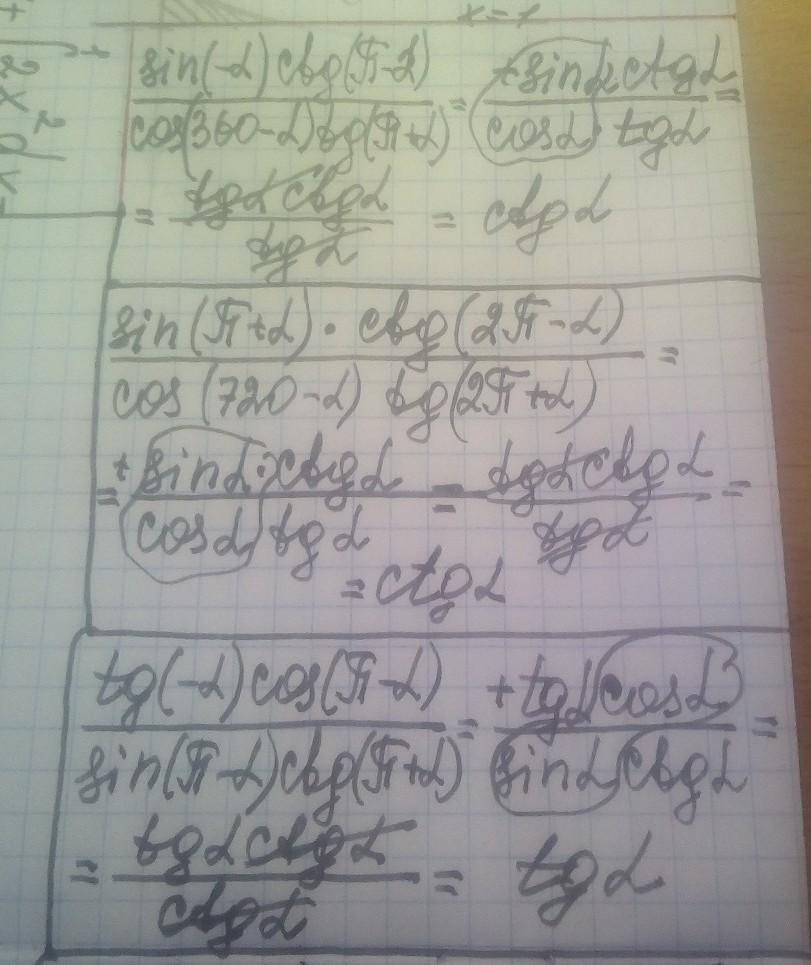 x = 1
sin(-α) ctg(π-α) / cos(360-α) tg(π+α) = +sinα ctgα / cosα tgα =
= tgα ctgα / tgα = ctgα
sin(π+α) · ctg(2π-α) / cos(720-α) tg(2π+α) =
= + sinα · ctgα / cosα tgα = tgα ctgα / tgα =
= ctgα
tg(-α) cos(π-α) / sin(π-α) ctg(π+α) = +tgα cosα / sinα ctgα =
= tgα ctgα / ctgα = tgα